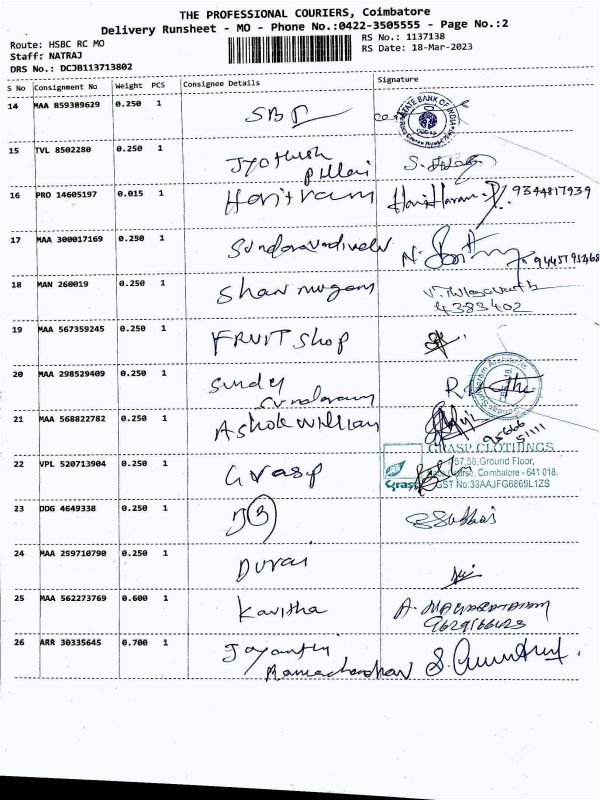 THE PROFESSIONAL COURIERS, Coimbatore
Delivery Runsheet - MO - Phone No.:0422-3505555 - Page No.:2
Route: HSBC RC MO
Staff: NATRAJ
DRS No.: DCJB113713802
RS No.: 1137138
RS Date: 18-Mar-2023
S No Consignment No Weight PCS Consignee Details Signature
14 MAA 859389629 0.250 1
STATE BANK OF INDIA
15 TVL 8502280 0.250 1 Jyothish
Pillai
16 PRO 14605197 0.015 1 Haritram Hariharan 9344817939
17 MAA 300017169 0.250 1 Sundaravadivelu
18 MAN 260019 0.250 1 Shanmugam
4383402
19 MAA 567359245 0.250 1 FRUIT Shop
20 MAA 298529409 0.250 1 Sundar
21 MAA 568822782 0.250 1 Ashok William
95666
51111
22 VPL 520713904 0.250 1 Grasp
GRASP CLOTHINGS
57,58,Ground Floor,
Coimbatore - 641 018.
Grasp GST No:33AAJFG6869L1ZS
23 DDG 4649338 0.250 1
24 MAA 299710790 0.250 1 Durai
25 MAA 562273769 0.600 1 Kavitha
26 ARR 30335645 0.700 1 Jayanthi
Ramachandran